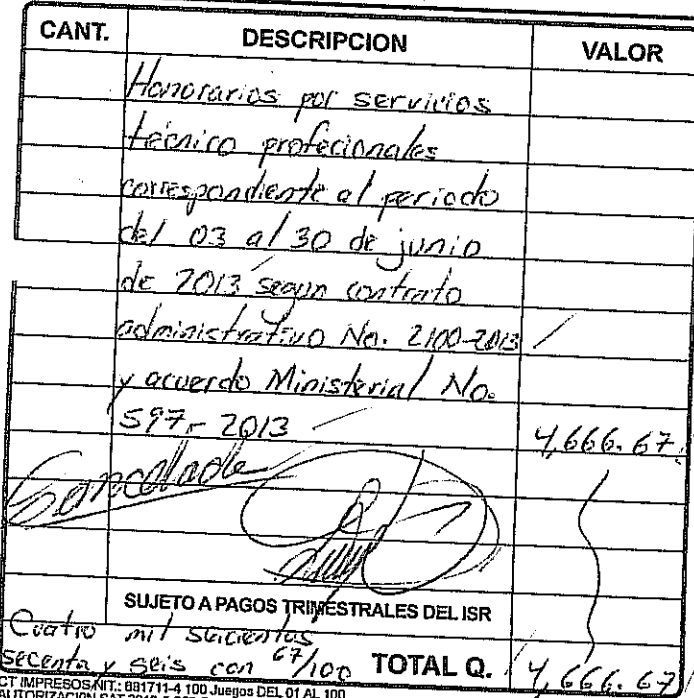 CANT. DESCRIPCION VALOR
Honorarios por servicios
técnico profecionales
correspondiente al periodo
del 03 al 30 de junio
de 2013 segun contrato
administrativo No. 2100-2013
y acuerdo Ministerial No.
597-2013 4,666.67
Cancelado
SUJETO A PAGOS TRIMESTRALES DEL ISR
Cuatro mil seicientos
secenta y seis con 67/100 TOTAL Q. 4,666.67
CT IMPRESOS NIT.: 681711-4 100 Juegos DEL 01 AL 100